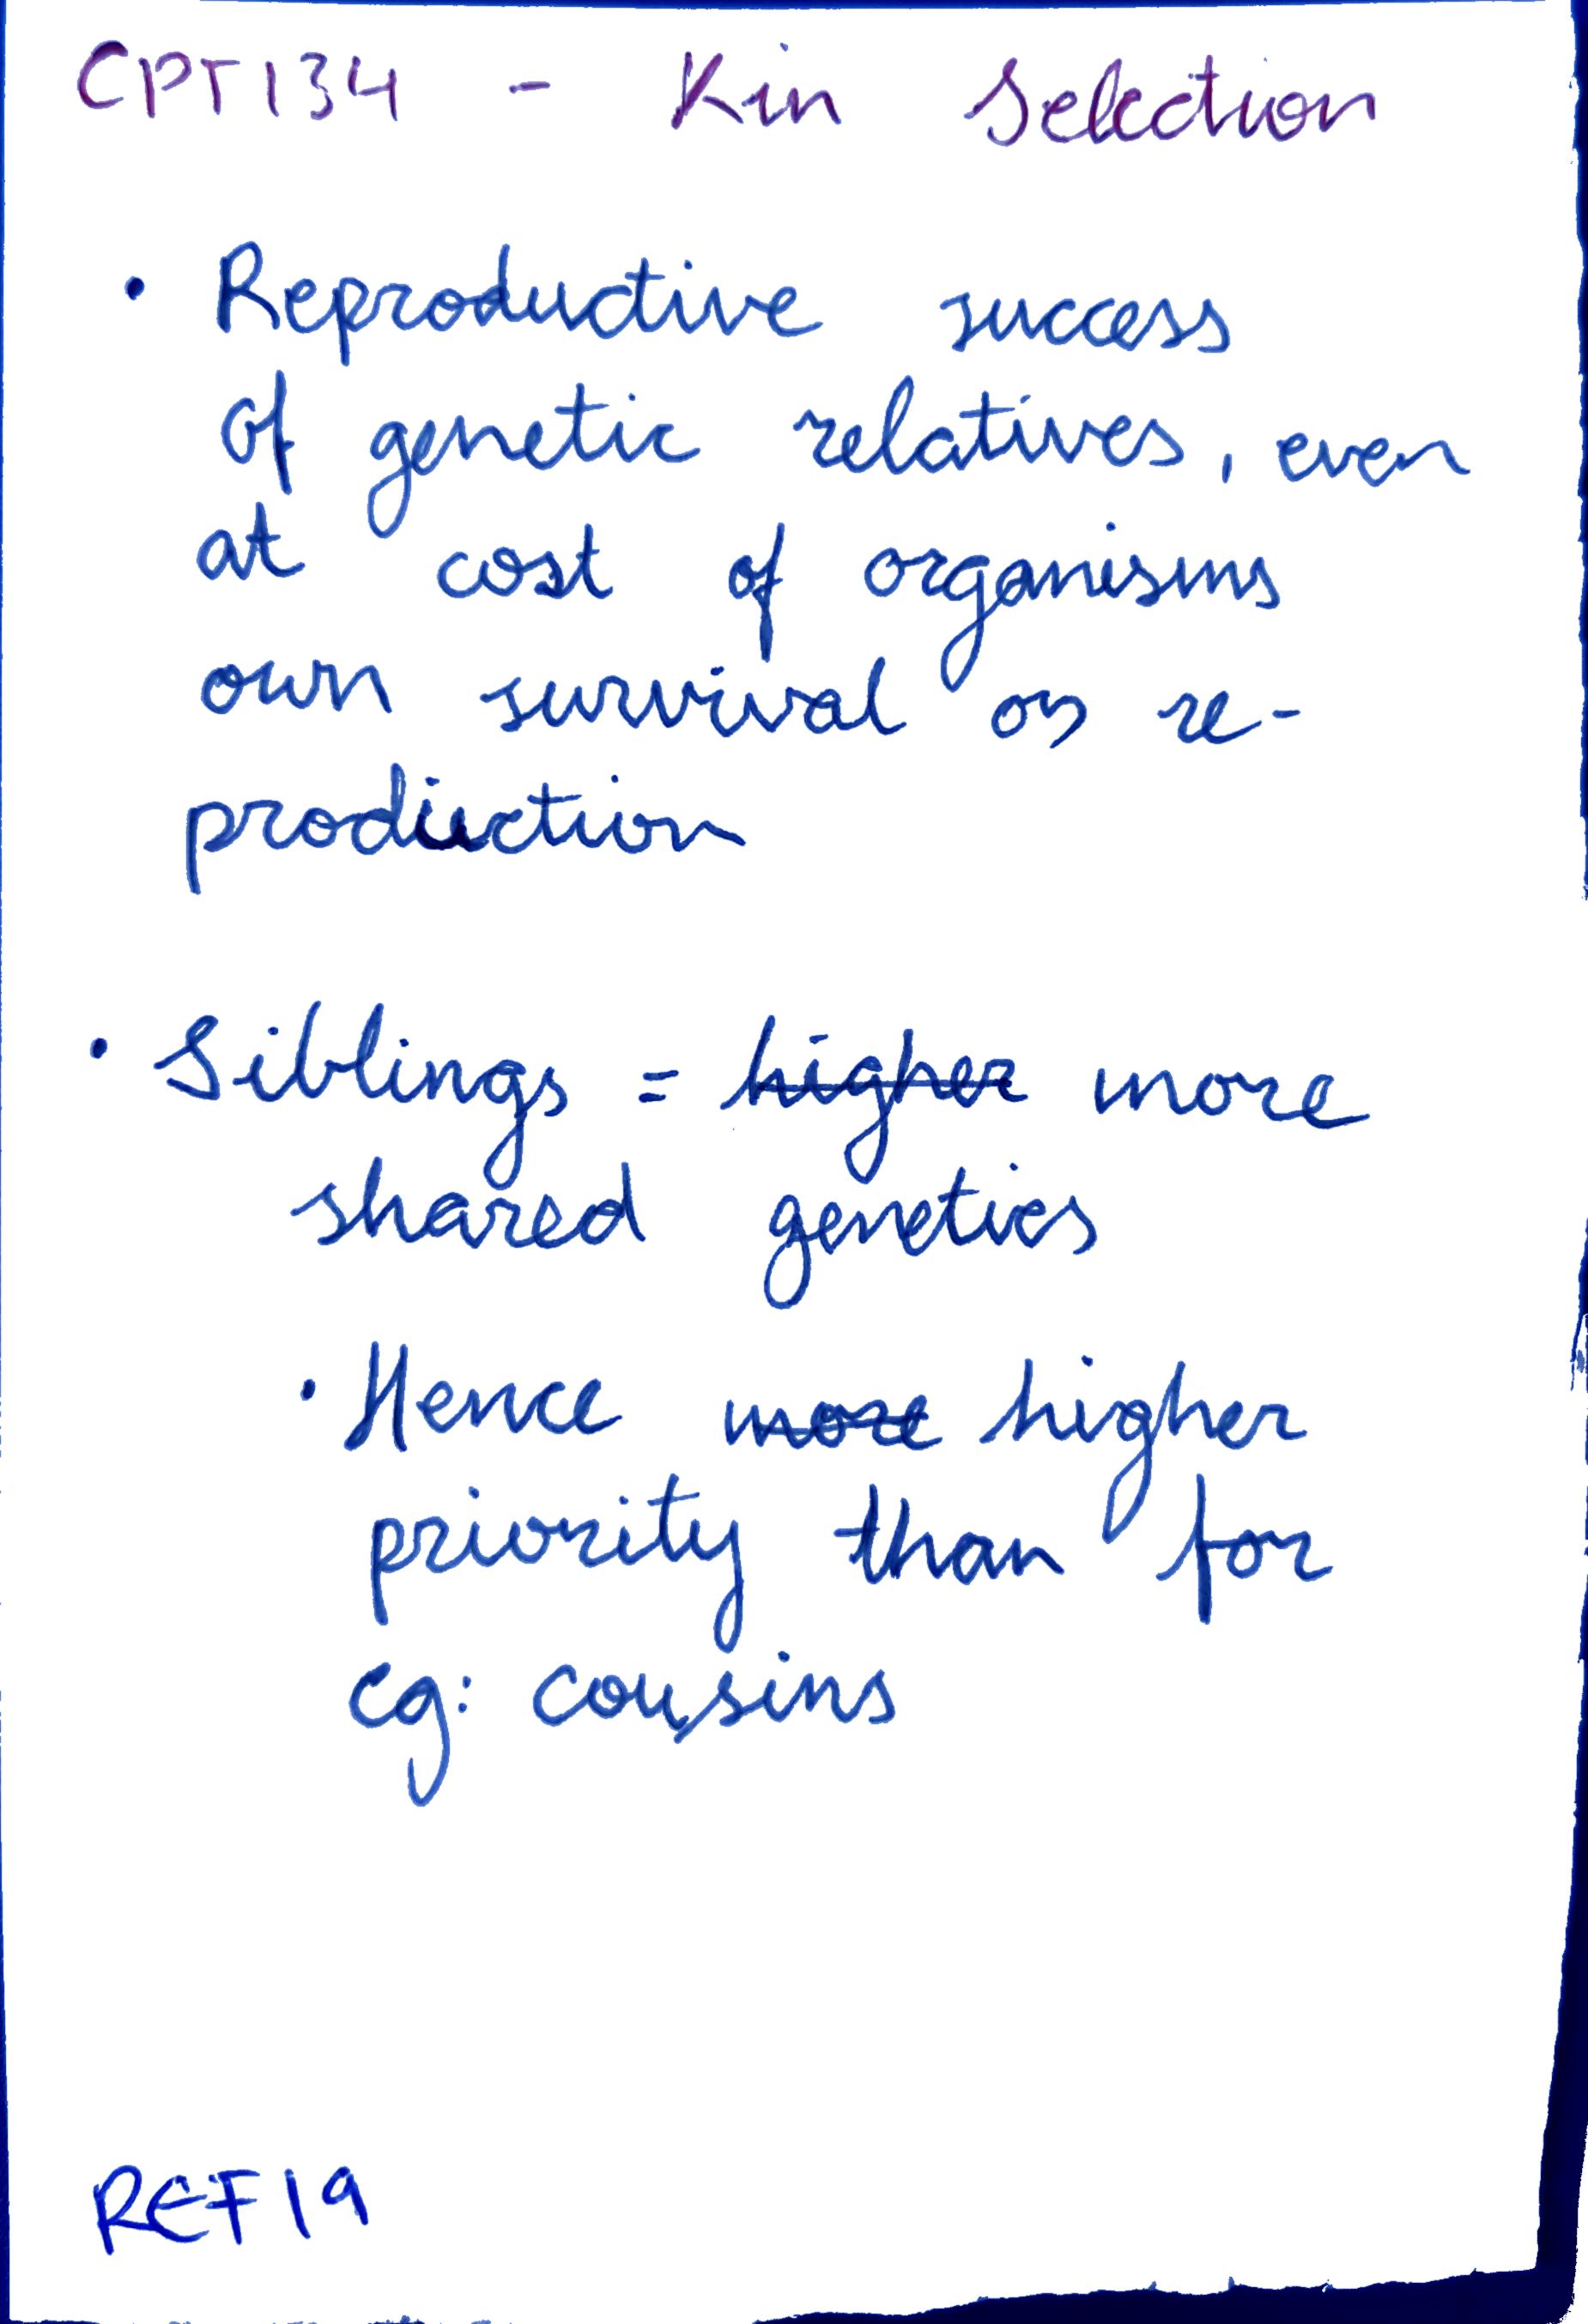 CPT134 - Kin Selection
• Reproductive success
of genetic relatives, even
at cost of organisms
own survival or re-
production
• Siblings = ~~higher~~ more
shared genetics
• Hence ~~more~~ higher
priority than for
eg: cousins
REF19